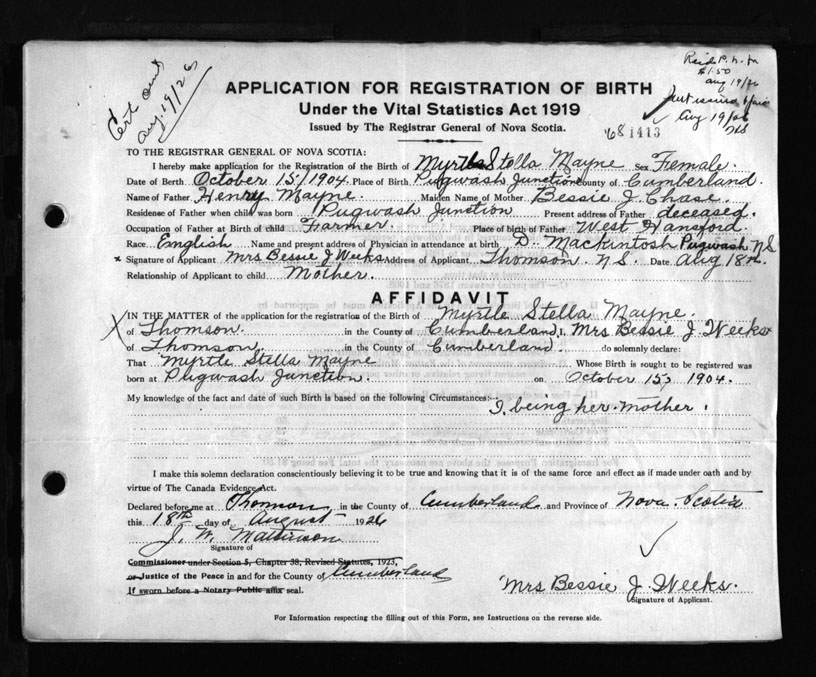 Cert sent
Aug. 19/26
$1.50
Aug 19/26
Aug 19/26
APPLICATION FOR REGISTRATION OF BIRTH
Under the Vital Statistics Act 1919
Issued by The Registrar General of Nova Scotia.
681413
TO THE REGISTRAR GENERAL OF NOVA SCOTIA:
I hereby make application for the Registration of the Birth of Myrtle Stella Mayne Sex Female.
Date of Birth October 15/1904. Place of Birth Pugwash Junction County of Cumberland.
Name of Father Henry Mayne. Maiden Name of Mother Bessie J. Chase.
Residense of Father when child was born Pugwash Junction Present address of Father deceased.
Occupation of Father at Birth of child Farmer. Place of birth of Father West Hansford.
Race English Name and present address of Physician in attendance at birth D. Mackintosh Pugwash N.S
x Signature of Applicant Mrs Bessie J Weeks Address of Applicant Thomson. N.S. Date Aug 18th.
Relationship of Applicant to child Mother.
AFFIDAVIT
IN THE MATTER of the application for the registration of the Birth of Myrtle Stella Mayne.
X of Thomson. in the County of Cumberland, I, Mrs Bessie J. Weeks x
of Thomson. in the County of Cumberland. do solemnly declare:
That Myrtle Stella Mayne Whose Birth is sought to be registered was
born at Pugwash Junction. on October 15, 1904.
My knowledge of the fact and date of such Birth is based on the following Circumstances:
I, being her mother.
I make this solemn declaration conscientiously believing it to be true and knowing that it is of the same force and effect as if made under oath and by
virtue of The Canada Evidence Act.
Declared before me at Thomson in the County of Cumberland and Province of Nova Scotia
this 18th day of August 1926
J. W. Mattinson
Signature of
Commissioner under Section 5, Chapter 38, Revised Statutes, 1923,
or Justice of the Peace in and for the County of Cumberland
If sworn before a Notary Public affix seal.
Mrs Bessie J. Weeks.
Signature of Applicant.
For Information respecting the filling out of this Form, see Instructions on the reverse side.